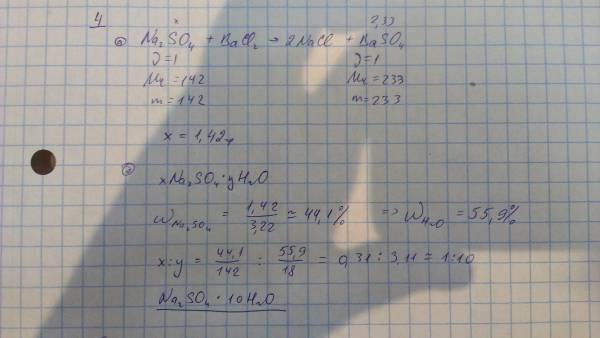 4
x 2,33
а) Na₂SO₄ + BaCl₂ → 2NaCl + BaSO₄
ν=1 ν=1
Mr =142 Mr =233
m =142 m =233
x = 1,42 г
б)
xNa₂SO₄·yH₂O
ω Na₂SO₄ = 1,42/3,22 ≃ 44,1% => ω H₂O = 55,9%
x:y = 44,1/142 : 55,9/18 = 0,31 : 3,11 = 1:10
Na₂SO₄ · 10H₂O